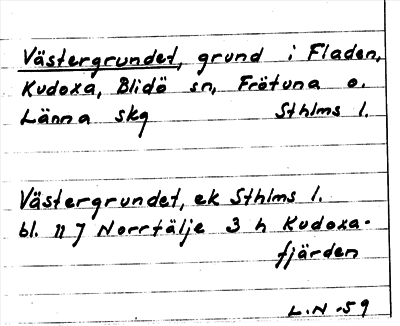 Västergrundet, grund i Fladen,
Kudoxa, Blidö sn, Frötuna o.
Länna skg Sthlms l.
Västergrundet, ek Sthlms l.
bl. 117 Norrtälje 3 h Kudoxa-
fjärden
L.N -59